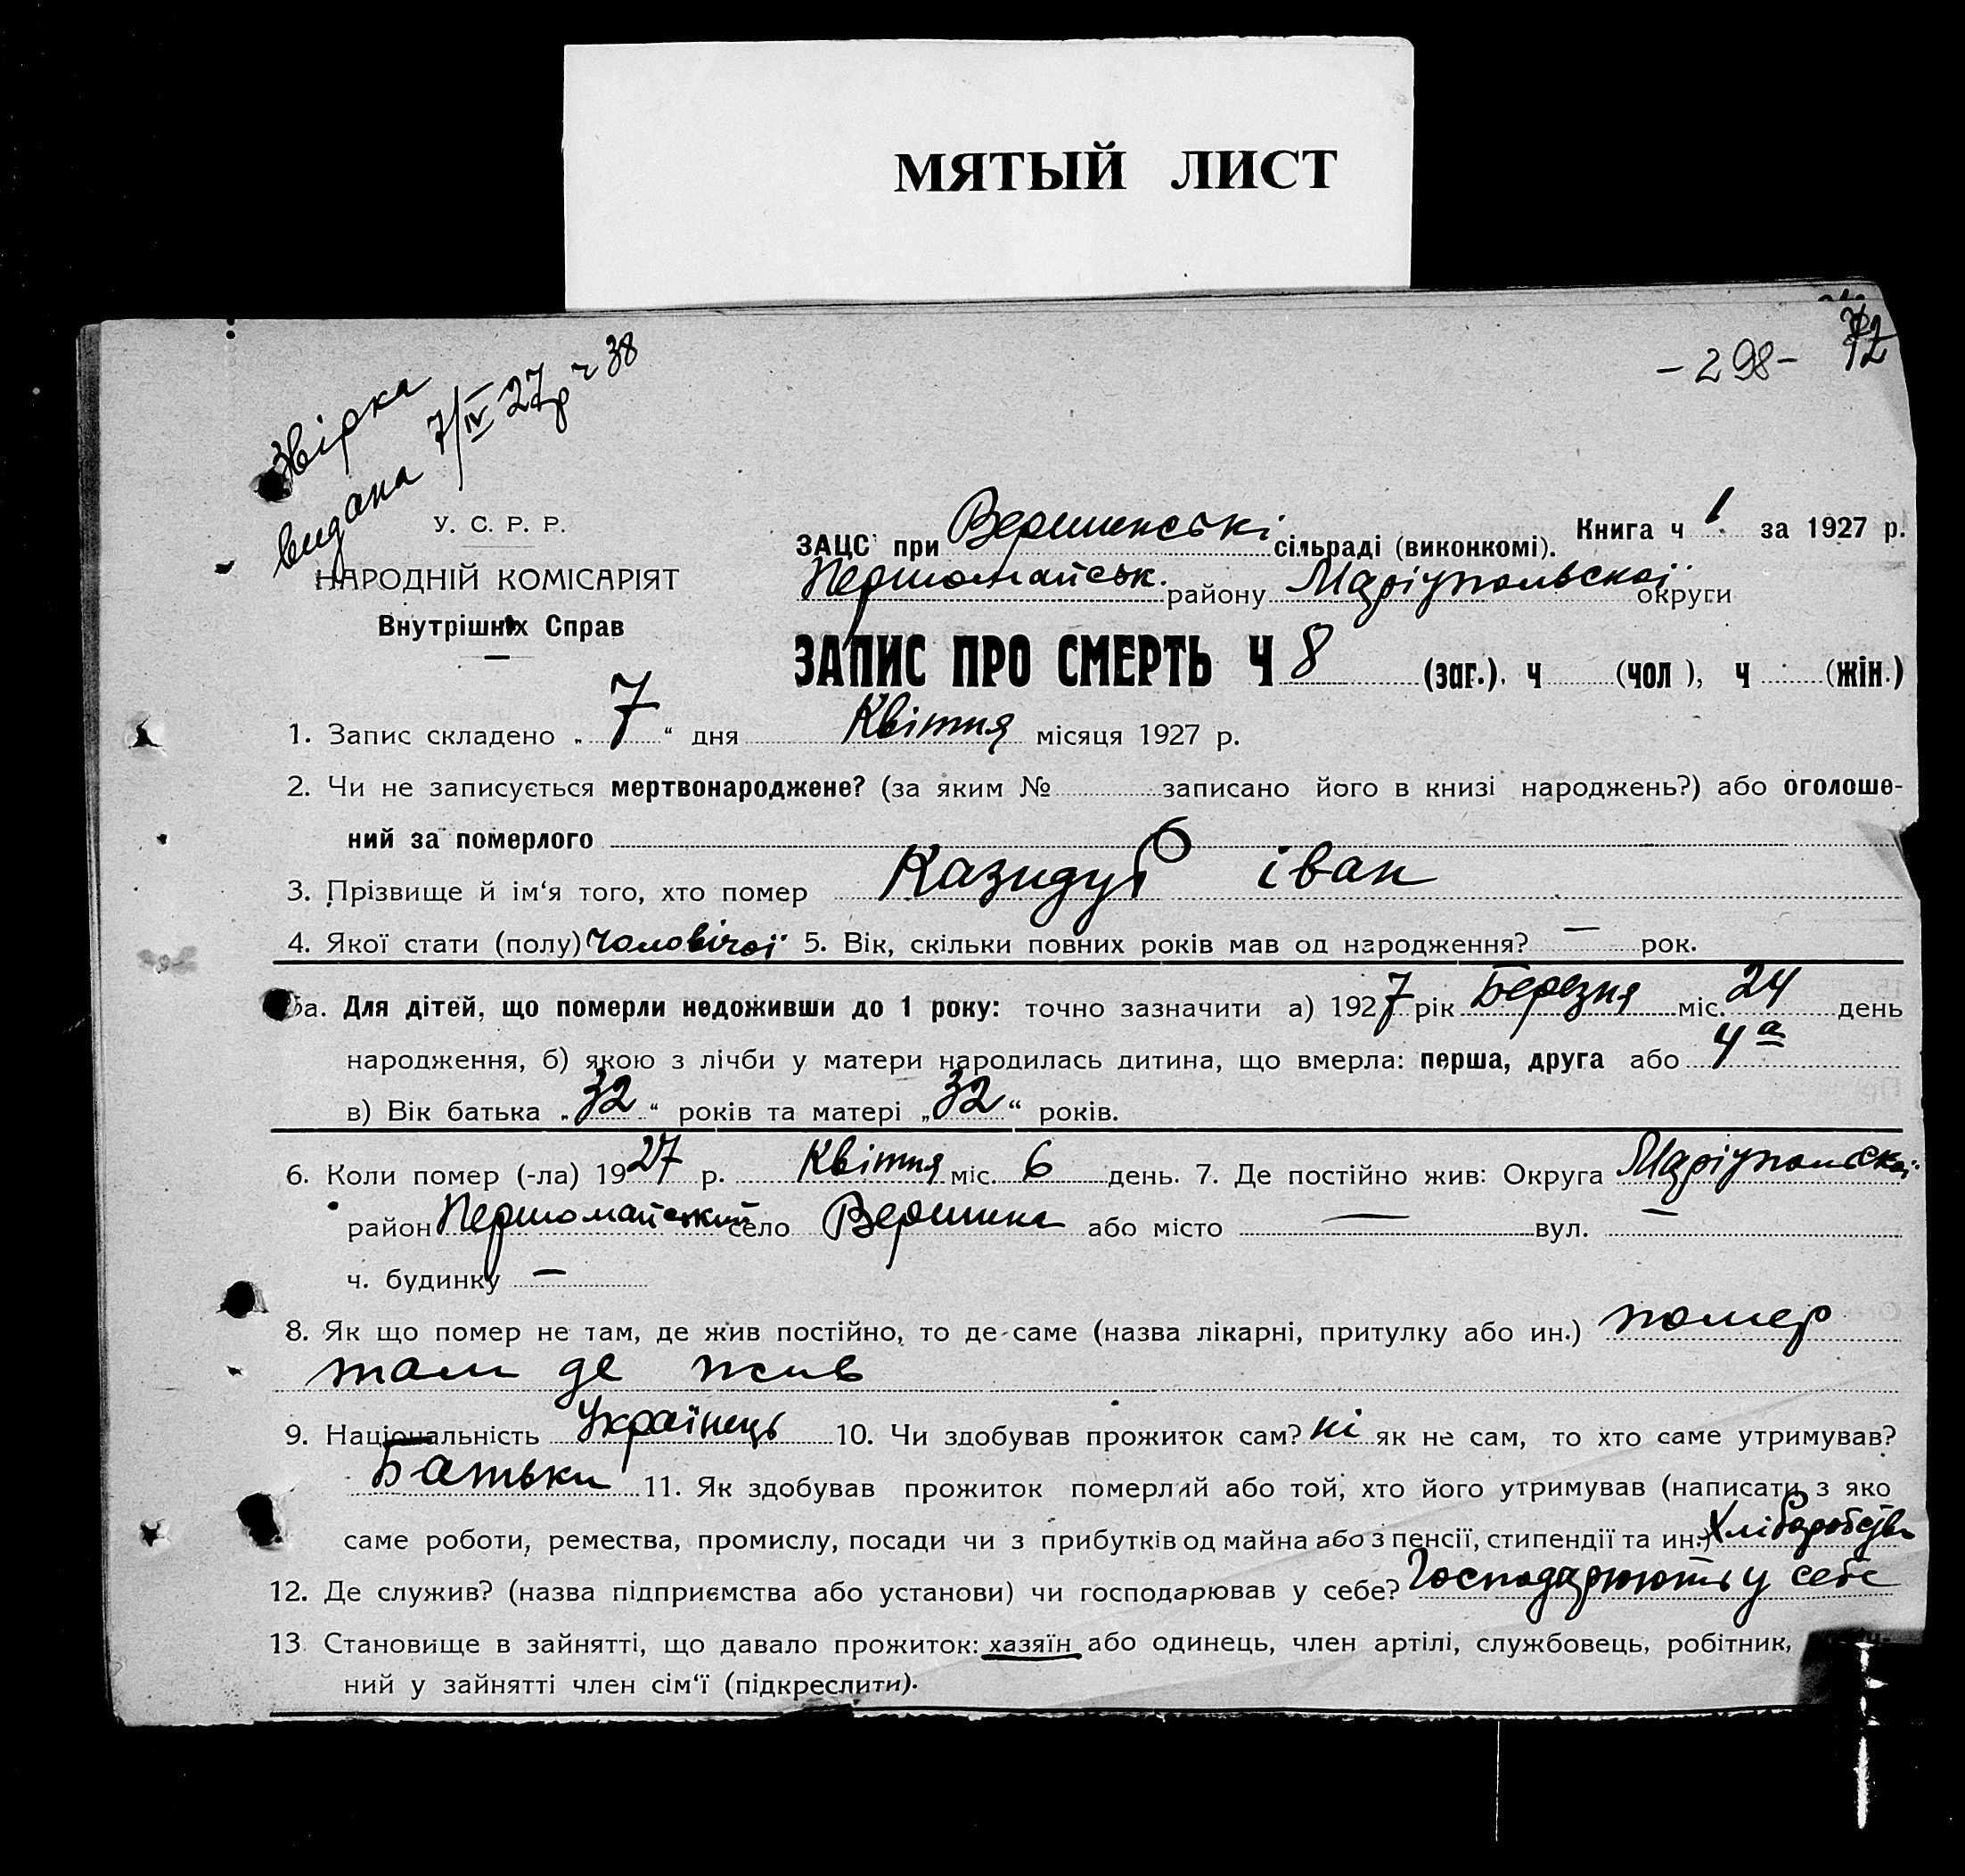 МЯТЫЙ ЛИСТ
-298- 72
Звірка
видана 7/IV 27р ч 38
У. С. Р. Р.
НАРОДНІЙ КОМІСАРІЯТ
Внутрішніх Справ
Книга ч 1 за 1927 р.
ЗАЦС при Вершинскі сільраді (виконкомі).
Першомайськ. району Маріупольскої округи
ЗАПИС ПРО СМЕРТЬ Ч 8 (заг.). ч (чол ), ч (жін.)
1. Запис складено „ 7 “ дня Квітня місяця 1927 р.
2. Чи не записується мертвонароджене? (за яким № записано його в книзі народжень?) або оголоше-
ний за померлого
3. Прізвище й ім‘я того, хто помер Казидуб іван
4. Якої стати (полу) чоловічої 5. Вік, скільки повних років мав од народження? — рок.
5а. Для дітей, що померли недоживши до 1 року: точно зазначити а) 1927 рік Березня міс. 24 день
народження, б) якою з лічби у матери народилась дитина, що вмерла: перша, друга або 4а
в) Вік батька „ 32 “ років та матері „ 32 “ років.
6. Коли помер (-ла) 1927 р. Квітня міс. 6 день. 7. Де постійно жив: Округа Маріупольскої
район Першомайський село Вершина або місто — вул. —
ч. будинку —
8. Як що помер не там, де жив постійно, то де-саме (назва лікарні, притулку або ин.) помер
там де жив
9. Національність Українець 10. Чи здобував прожиток сам? ні як не сам, то хто саме утримував?
Батьки 11. Як здобував прожиток померлий або той, хто його утримував (написати з яко
саме роботи, ремества, промислу, посади чи з прибутків од майна або з пенсії, стипендії та ин.)
12. Де служив? (назва підприємства або установи) чи господарював у себе? Господарюють у себе
13. Становище в зайнятті, що давало прожиток: хазяїн або одинець, член артілі, службовець, робітник,
ний у зайнятті член сім‘ї (підкреслити).